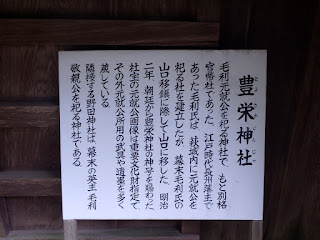 豊栄神社
とよさかじんじゃ
毛利元就公を祀る神社で、もと別格
官幣社であった。江戸時代長州藩主で
あった毛利氏は、萩城内に元就公を
祀る社を建立したが、幕末毛利氏の
山口移鎮に際して山口に移した。明治
二年、朝廷から豊栄神社の神号を賜わった
社宝の元就公画像は重要文化財指定で
その外元就公所用の武具や遺墨を多く
蔵している
隣接する野田神社は、幕末の英主毛利
敬親公を祀る神社である